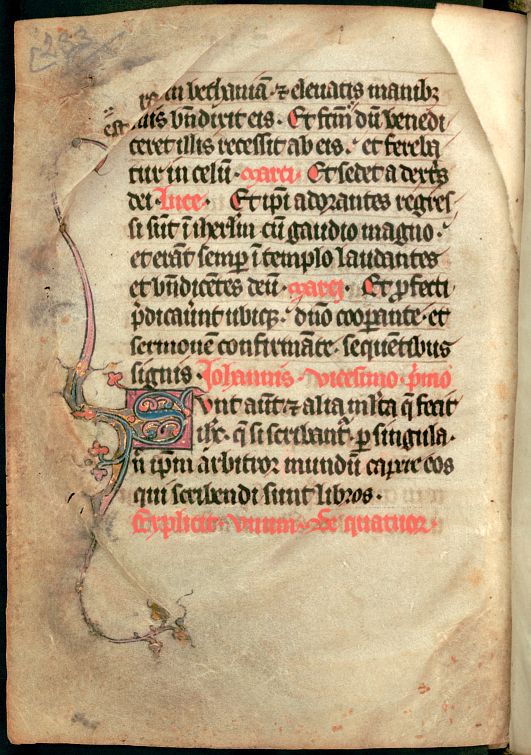 in bethaniā · ⁊ eleuatis manibꝫ
suis bn̄dixit eis · Et fcm̄ dū benedi
ceret illis recessit ab eis · et fereba
tur in celū · Marci · Et sedet a dextis
dei · luce · Et ipi adorantes regres
si sūt ī iherlm cū gaudio magno ·
et erāt semp ī templo laudantes
et bn̄dicētes deū · Marci · Et pfecti
pdicauerūt ubiqꝫ · dn̄o coopante · et
sermonē confirmāte · sequētibus
signis · Iohannis · vicesimo · pmo
Sunt aūt ⁊ alia mlta q̄ fecit
ihc · q̄ si scribant᷑ p singula ·
n̄ ipm arbitror mundū capere eos
qui scribendi sunt libros ·
Explicit · vnum · Ex quatuor ·